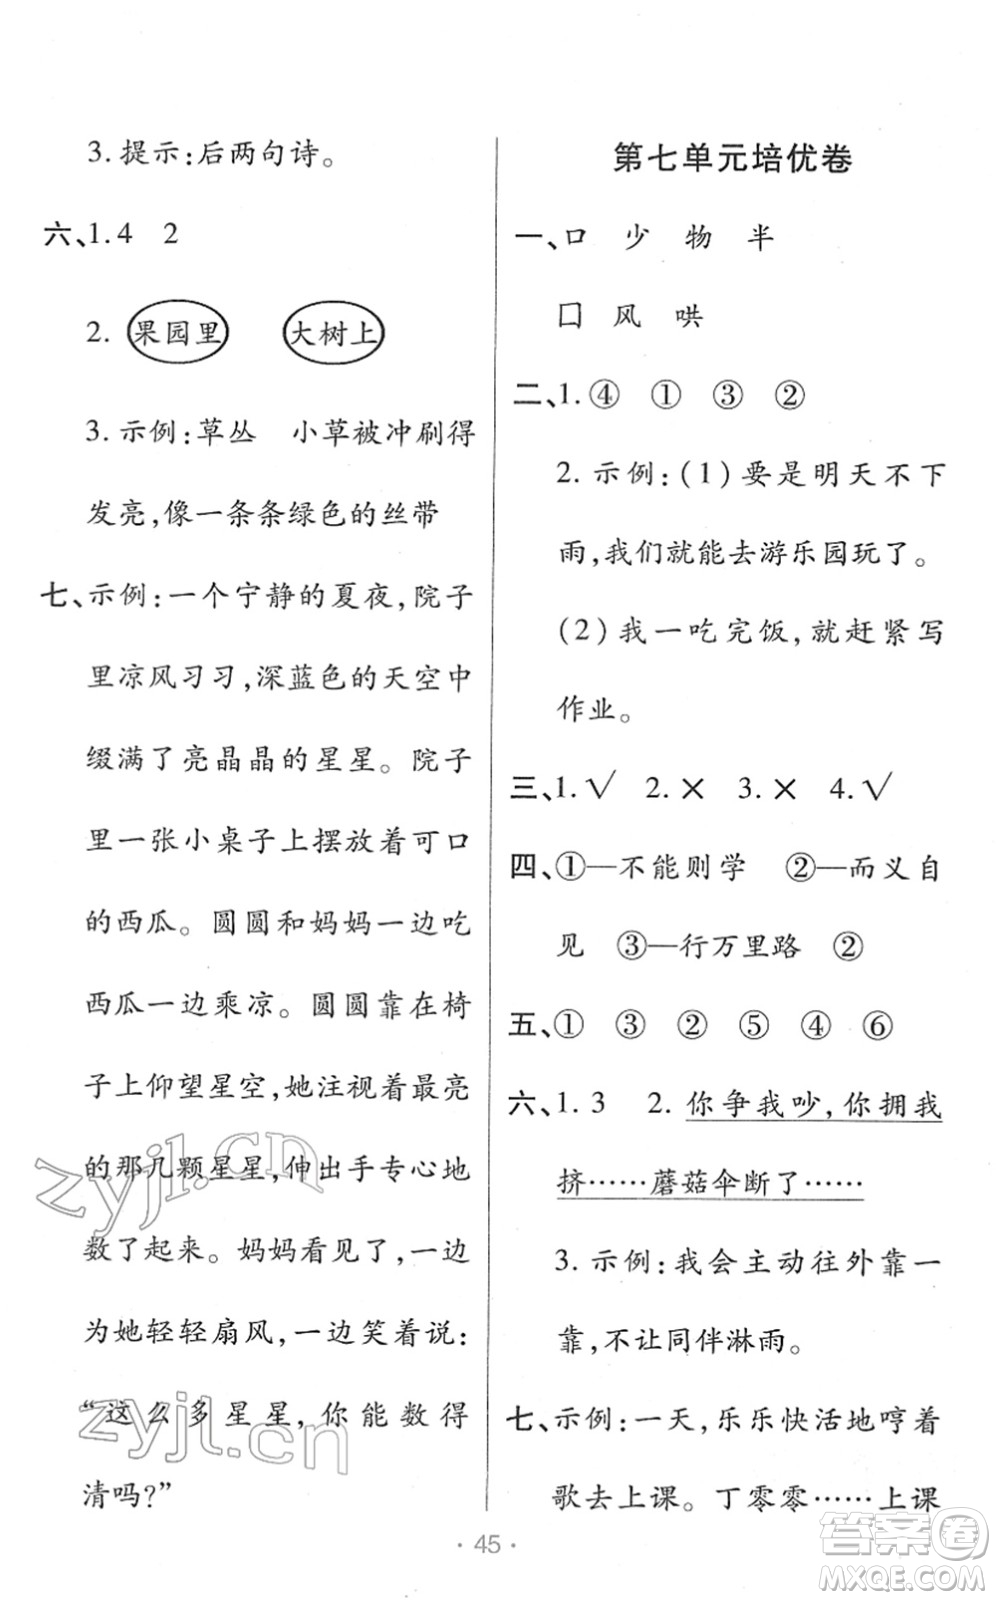 3. 提示:后两句诗。
六、1. 4 2
2. 果园里 大树上
3. 示例:草丛 小草被冲刷得
发亮,像一条条绿色的丝带
七、示例:一个宁静的夏夜,院子
里凉风习习,深蓝色的天空中
缀满了亮晶晶的星星。院子
里一张小桌子上摆放着可口
的西瓜。圆圆和妈妈一边吃
西瓜一边乘凉。圆圆靠在椅
子上仰望星空,她注视着最亮
的那几颗星星,伸出手专心地
数了起来。妈妈看见了,一边
为她轻轻扇风,一边笑着说:
“这么多星星,你能数得
清吗?”
第七单元培优卷
一、口 少 物 半
囗 风 哄
二、1. ④ ① ③ ②
2. 示例:(1)要是明天不下
雨,我们就能去游乐园玩了。
(2)我一吃完饭,就赶紧写
作业。
三、1. √ 2. × 3. × 4. √
四、①—不能则学 ②—而义自
见 ③—行万里路 ②
五、① ③ ② ⑤ ④ ⑥
六、1. 3 2. 你争我吵,你拥我
挤……蘑菇伞断了……
3. 示例:我会主动往外靠一
靠,不让同伴淋雨。
七、示例:一天,乐乐快活地哼着
歌去上课。丁零零……上课
· 45 ·
zyjl.cn
zyjl.cn
答案圈
MXQE.COM